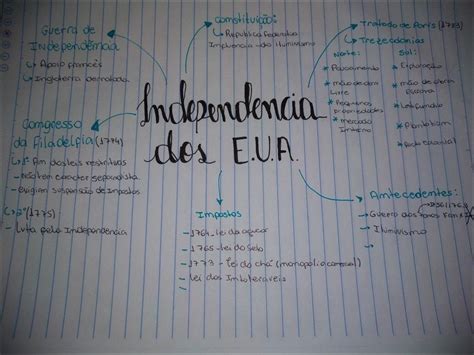 Guerra de
Independência
↳ Apoio francês
↳ Inglaterra derrotada
Constituição:
↳ República Federativa
Influência do Iluminismo
Tratado de Paris (1783)
↳ Treze colônias
Norte:
* Povoamento
* mão de obra
livre
* Pequenas
propriedades
* mercado
Interno
Sul:
* Exploração
* mão de obra
Escrava
* Latifundio
* Plantation
* Pacto colonial
Independencia
dos E.U.A.
Congresso
da Filadélfia (1774)
↳ 1º Fim das leis restritivas
- Não tem caráter separatista
- Exigiram suspensão de Impostos
↳ 2º (1775)
- Luta pela Independência
Impostos
- 1764 - lei do açúcar
- 1765 - lei do selo
- 1773 - lei do chá (monopólio comercial)
- lei dos Intoleráveis
Antecedentes:
1756/1763
- Guerra dos
- Iluminismo